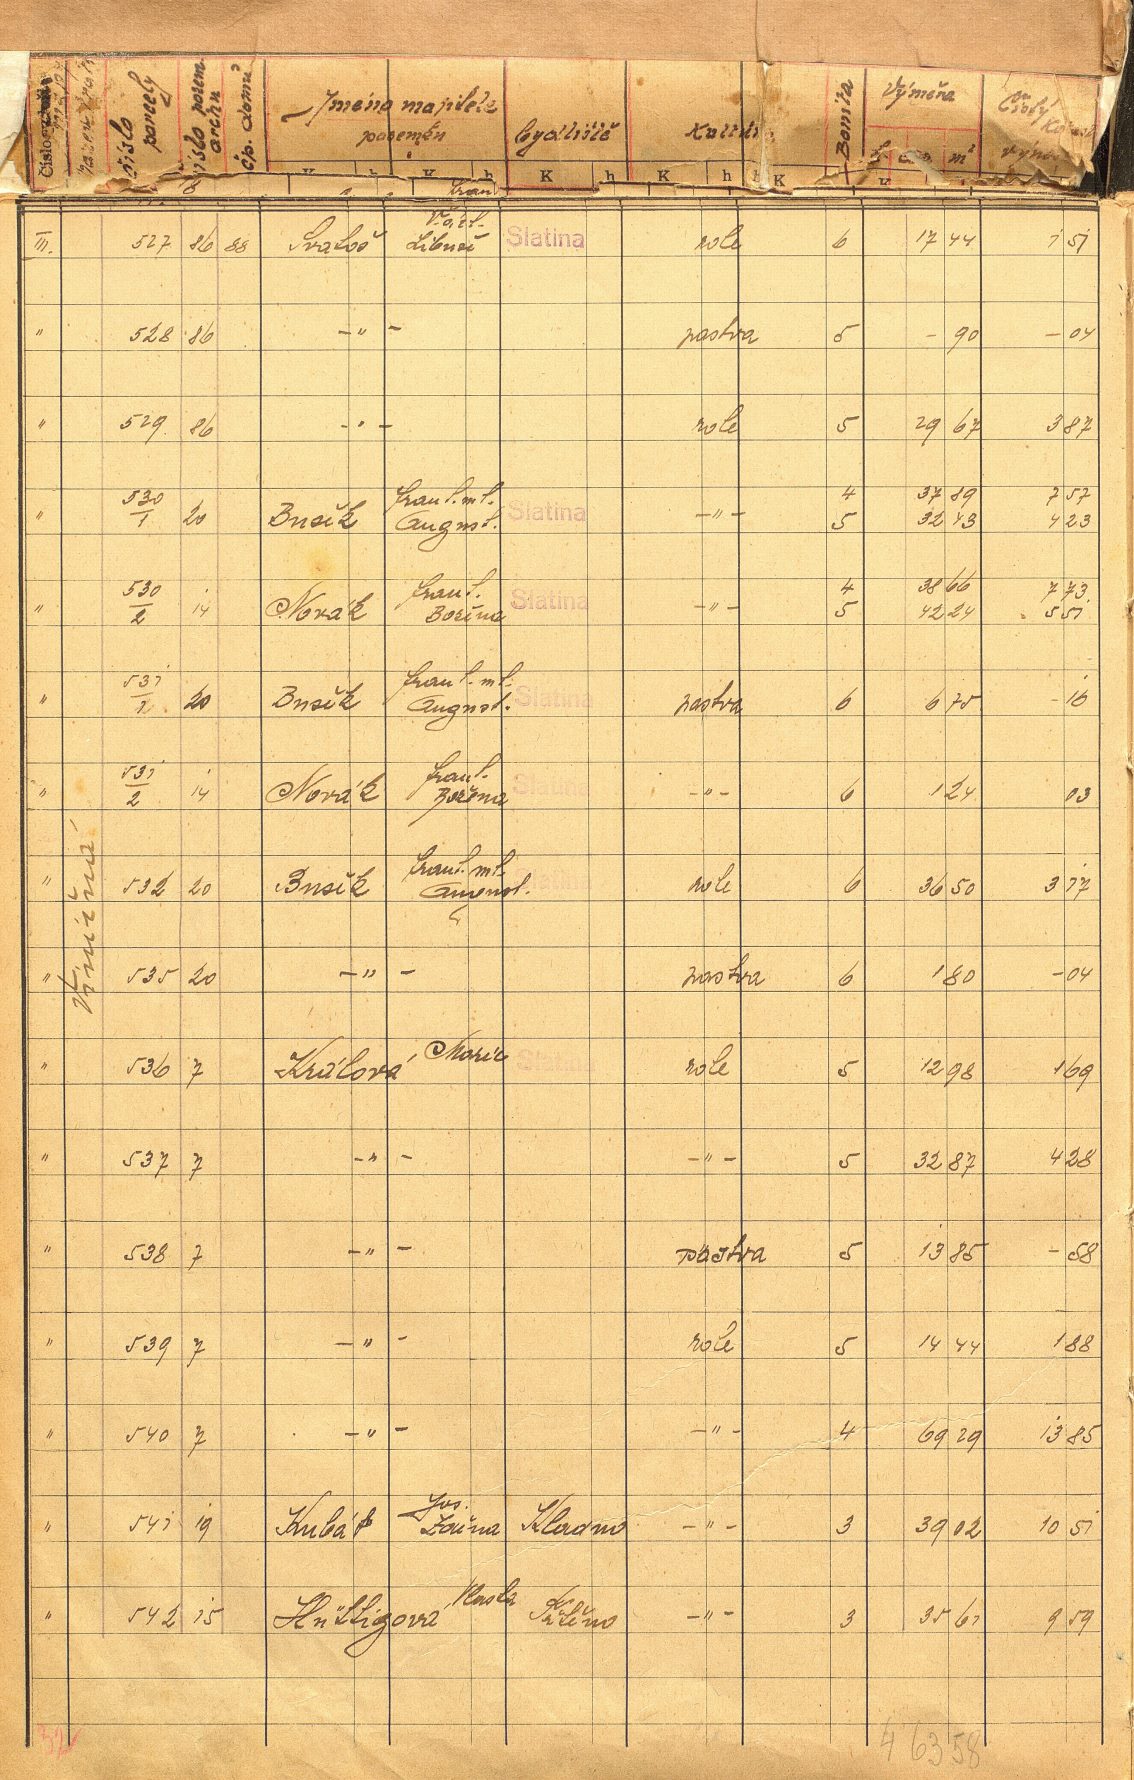 číslo parcely
číslo pozem. archu
čp. domu
Jména majitele
pozemku
bydliště
Kultura
Bonita
Výměra
m²
Čistý
K h K h K h K h h K
Frant.
III. 527 86 88 Svatoš Slatina role 6 17 44 1 51
Libuše
" 528 86 — " — pastva 5 – 90 – 04
" 529 86 — " — role 5 29 67 3 87
" 530/1 20 Busík Frant. ml. Slatina — " — 4 37 89 7 57
August. 5 32 43 4 23
" 530/2 14 Novák Frant. Slatina — " — 4 38 66 7 73
Božena 5 42 24 5 51
" 531/1 20 Busík Frant. ml. Slatina pastva 6 6 75 – 16
August.
" 531/2 14 Novák Frant. Slatina — " — 6 1 24 03
Božena
" 532 20 Busík Frant. ml. Slatina role 6 36 50 3 17
August.
" 535 20 — " — pastva 6 1 80 – 04
Viničná
" 536 7 Králová Marie Slatina role 5 12 98 1 69
" 537 7 — " — — " — 5 32 87 4 28
" 538 7 — " — pastva 5 13 85 – 58
" 539 7 — " — role 5 14 44 1 88
" 540 7 — " — — " — 4 69 29 13 85
" 541 19 Kubát Jos. Kladno — " — 3 39 02 10 51
" 542 15 Hüttigová Vlasta — " — 3 35 61 9 59
32
4 63 58